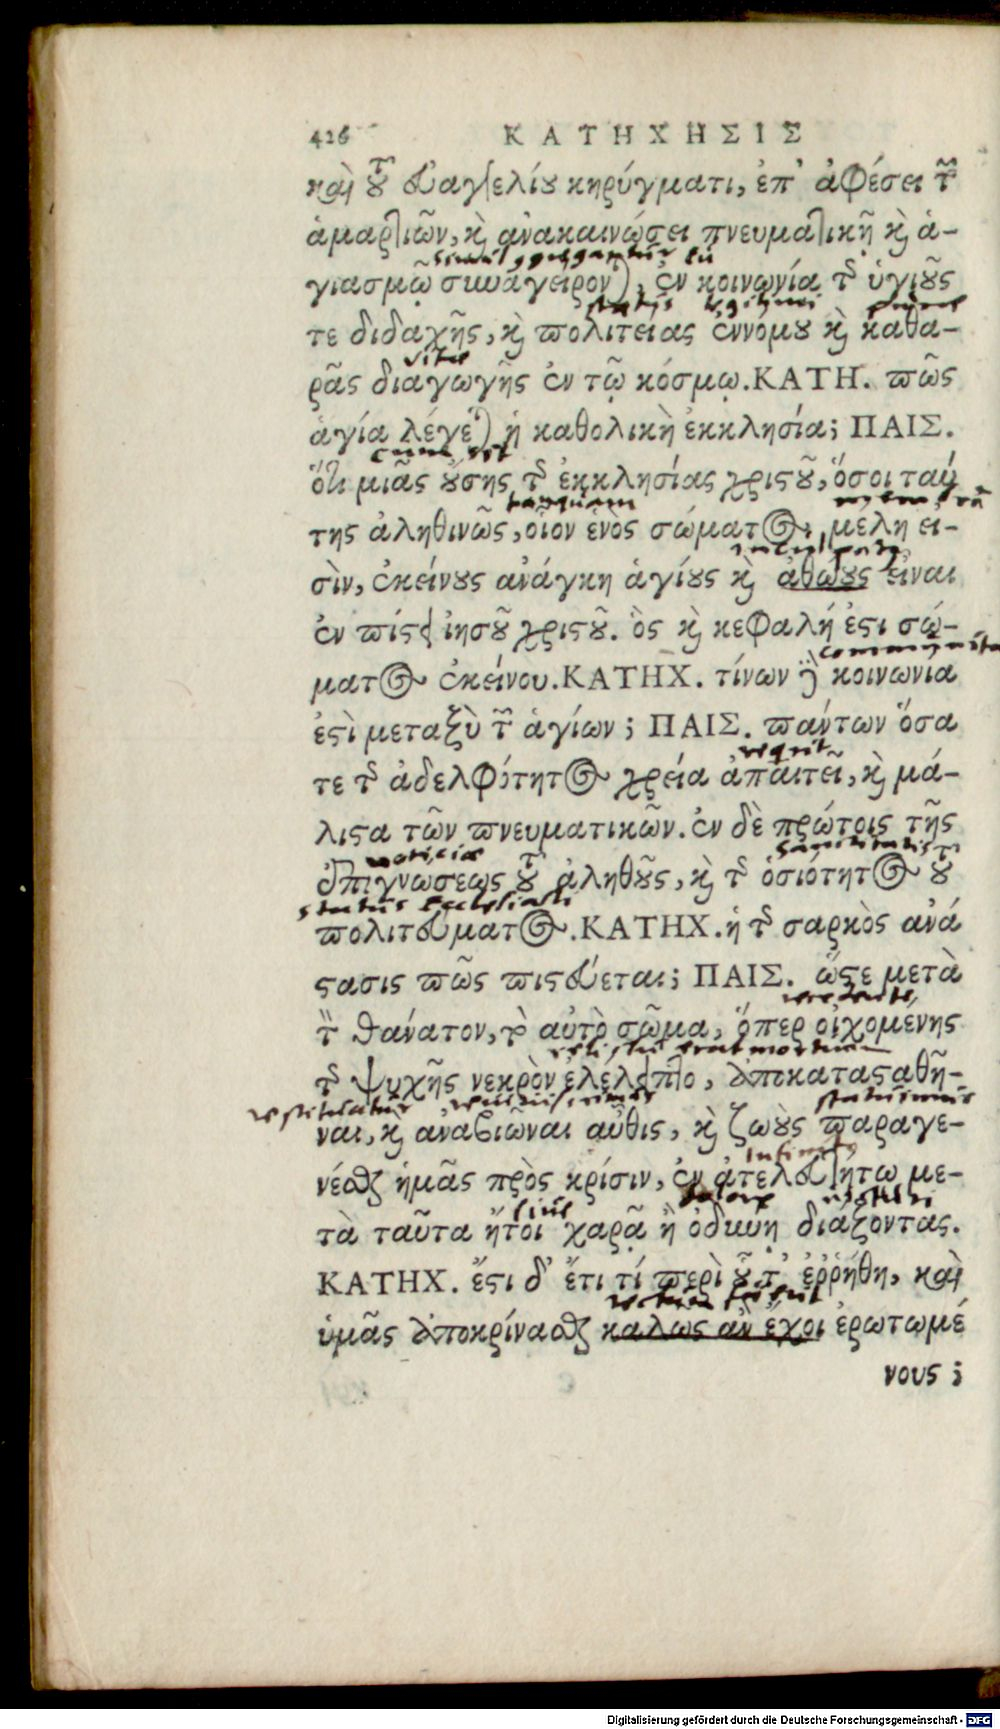 426 ΚΑΤΗΧΗΣΙΣ
καὶ τοῦ εὐαγγελίου κηρύγματι, ἐπ' ἀφέσει τῶν
ἁμαρτιῶν, καὶ ἀνακαινώσει πνευματικῇ καὶ ἁ-
γιασμῷ συνάγειρονται, ἐν κοινωνίᾳ τῆς ὑγιοῦς
τε διδαχῆς, καὶ πολιτείας ἐννόμου καὶ καθα-
vitae
ρᾶς διαγωγῆς ἐν τῷ κόσμῳ. ΚΑΤΗ. πῶς
ἁγία λέγεται ἡ καθολικὴ ἐκκλησία; ΠΑΙΣ.
ὅτι μιᾶς οὔσης τῆς ἐκκλησίας χριστοῦ, ὅσοι ταύ
tanquam
της ἀληθινῶς, οἷον ἑνὸς σώματος, μέλη εἰ-
σὶν, ἐκείνους ἀνάγκη ἁγίους καὶ ἀθώους εἶναι
ἐν πίστει ἰησοῦ χριστοῦ. ὃς καὶ κεφαλή ἐστι σώ-
ματος ἐκείνου. ΚΑΤΗΧ. τίνων ἡ κοινωνία
ἐστὶ μεταξὺ τῶν ἁγίων; ΠΑΙΣ. πάντων ὅσα
requirit
τε τῆς ἀδελφότητος χρεία ἀπαιτεῖ, καὶ μά-
λιστα τῶν πνευματικῶν. ἐν δὲ πρώτοις τῆς
noticiae sanctitatis
ἐπιγνώσεως τοῦ ἀληθοῦς, καὶ τῆς ὁσιότητος τοῦ
status Ecclesiasti
πολιτεύματος. ΚΑΤΗΧ. ἡ τῆς σαρκὸς ἀνά
στασις πῶς πιστεύεται; ΠΑΙΣ. ὥστε μετὰ
τὸν θάνατον, τὸ αὐτὸ σῶμα, ὅπερ οἰχομένης
τῆς ψυχῆς νεκρὸν ἐλέλειπτο, ἀποκατασταθῆ-
ναι, καὶ ἀναβιῶναι αὖθις, καὶ ζωοὺς παραγε-
νέσθαι ἡμᾶς πρὸς κρίσιν, ἐν ἀτελευτήτῳ με-
sive dolore
τὰ ταῦτα ἤτοι χαρᾷ ἢ ὀδύνῃ διάξοντας.
ΚΑΤΗΧ. ἔστι δ' ἔτι τί περὶ οὗ τ' ἐῤῥήθη, καὶ
ὑμᾶς ἀποκρίνασθαι καλῶς ἂν ἔχοι ἐρωτωμέ
νους;
Digitalisierung gefördert durch die Deutsche Forschungsgemeinschaft - DFG